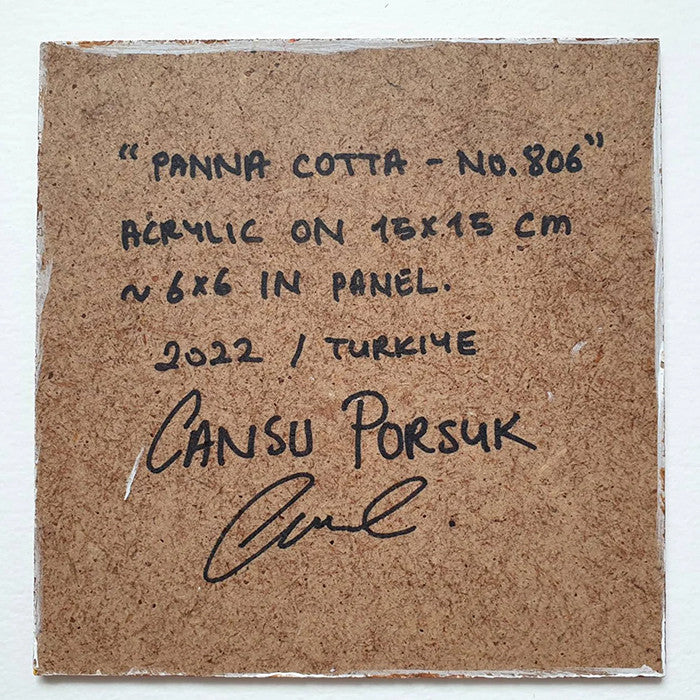 “PANNA COTTA - NO.806”
ACRYLIC ON 15x15 cm
~ 6x6 IN PANEL.
2022 / TURKIYE
CANSU PORSUK